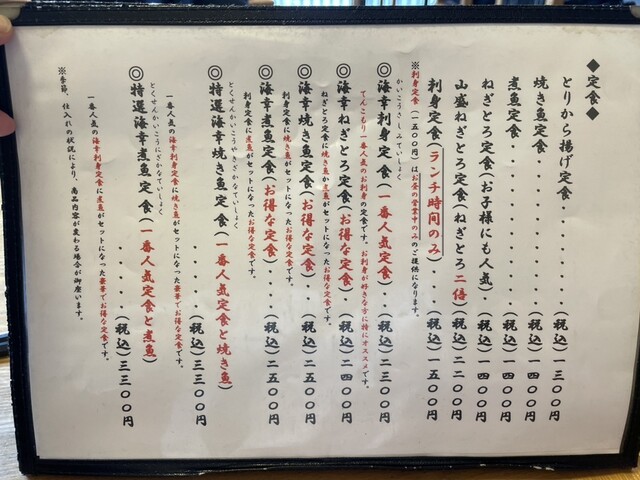 ◆定食◆
とりから揚げ定食・・・・・・・(税込)一三〇〇円
焼き魚定食・・・・・・・・(税込)一四〇〇円
煮魚定食・・・・・・・・・(税込)一四〇〇円
ねぎとろ定食(お子様にも人気)・(税込)一四〇〇円
山盛ねぎとろ定食(ねぎとろ二倍)(税込)二二〇〇円
刺身定食(ランチ時間のみ)・・(税込)一五〇〇円
※刺身定食(一五〇〇円)はお昼の営業中のみのご提供になります。
かいこうさしみていしょく
◎海幸刺身定食(一番人気定食)・(税込)二三〇〇円
てんこり一番人気のお刺身の定食です。お刺身が好きな方に特にオススメです。
◎海幸ねぎとろ定食(お得な定食)・(税込)二四〇〇円
ねぎとろ定食に焼き魚か煮魚がセットになったお得な定食です。
◎海幸焼き魚定食(お得な定食)・・(税込)二五〇〇円
刺身定食に焼き魚がセットになったお得な定食です。
◎海幸煮魚定食(お得な定食)・・・・(税込)二五〇〇円
刺身定食に煮魚がセットになったお得な定食です。
とくせんかいこうやきざかなていしょく
◎特選海幸焼き魚定食(一番人気定食と焼き魚)
・・・・・(税込)三三〇〇円
一番人気の海幸刺身定食に焼き魚がセットになった豪華でお得な定食です。
とくせんかいこうにざかなていしょく
◎特選海幸煮魚定食(一番人気定食と煮魚)
・・・・・(税込)三三〇〇円
一番人気の海幸刺身定食に煮魚がセットになった豪華でお得な定食です。
※季節、仕入れの状況により、商品内容が変わる場合が御座います。